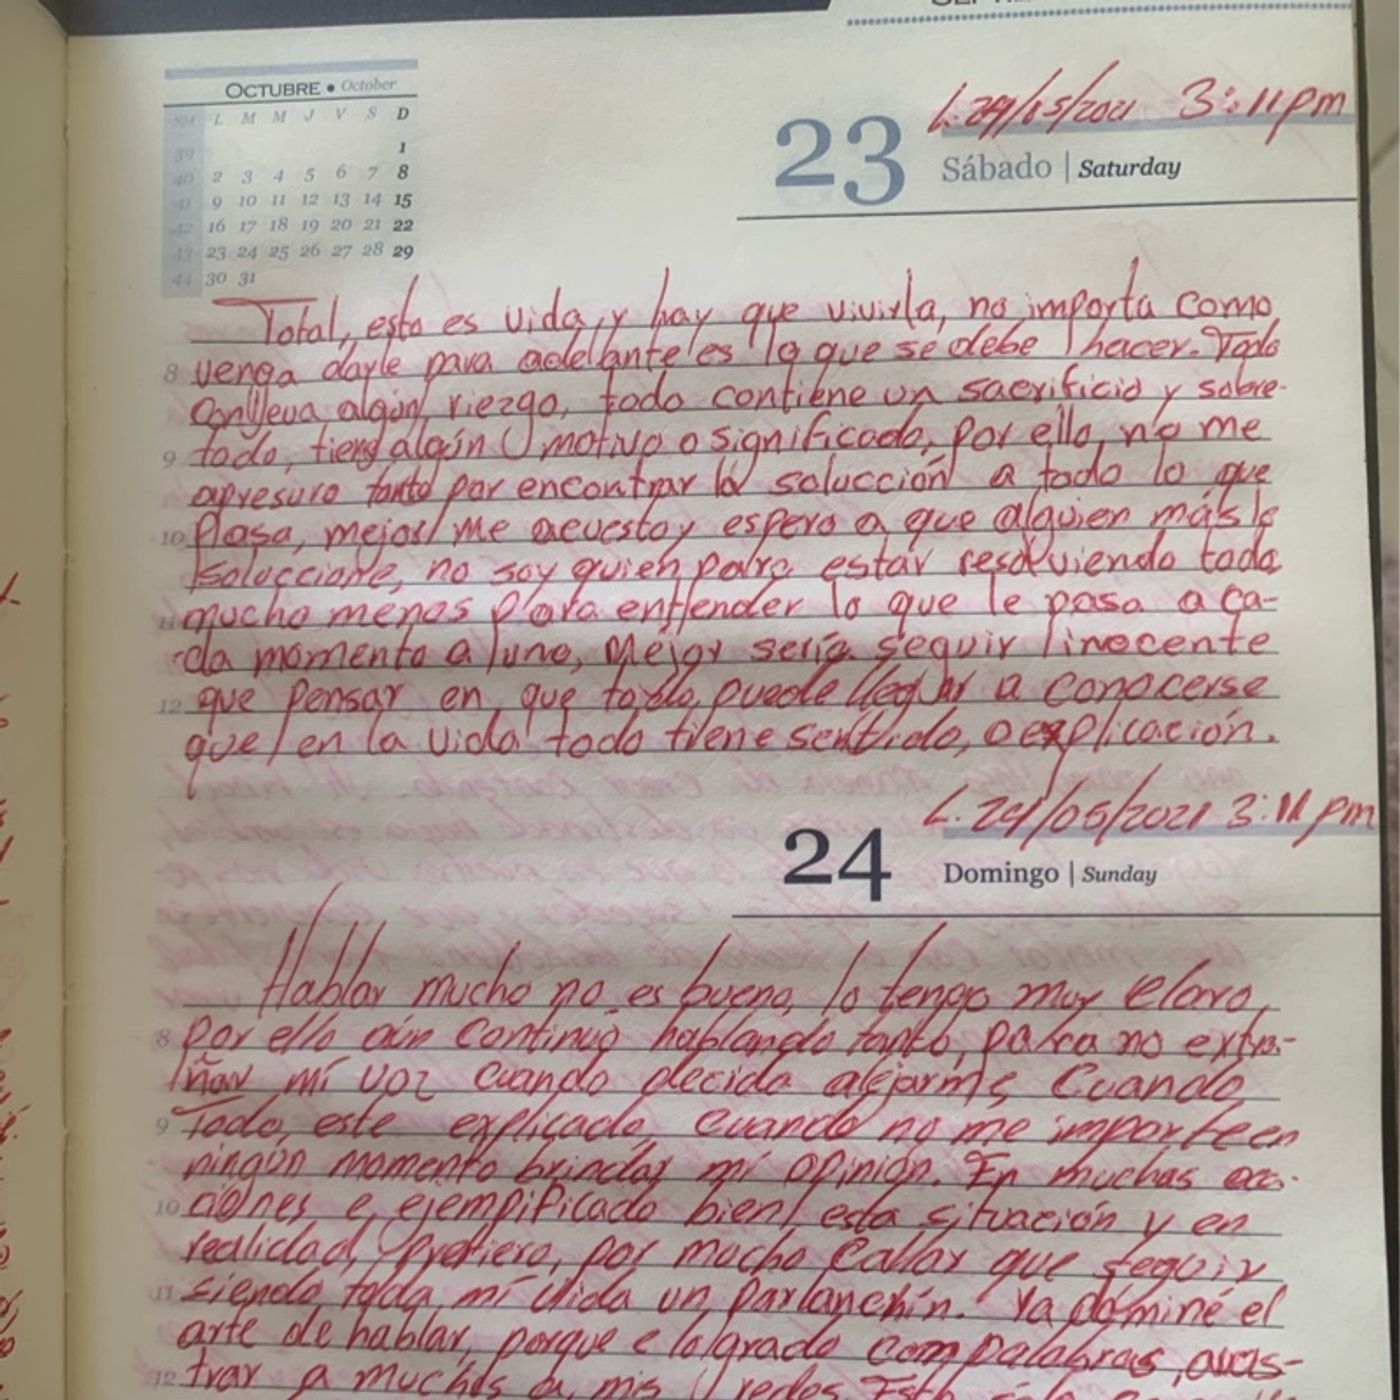 OCTUBRE • October
SM L M M J V S D
39 1
40 2 3 4 5 6 7 8
41 9 10 11 12 13 14 15
42 16 17 18 19 20 21 22
43 23 24 25 26 27 28 29
44 30 31
L. 24/05/2021 3:11 pm
23
Sábado | Saturday
Total, esta es vida, y hay que vivirla, no importa como
8 venga darle para adelante es lo que se debe hacer. Todo
conlleva algún riezgo, todo contiene un sacrificio y sobre-
9 todo, tiene algún motivo o significado, por ello, no me
apresuro tanto por encontrar la solucción a todo lo que
10 Pasa, mejor me acuesto y espero a que alguien más lo
soluccione, no soy quien para estar resolviendo todo
11 mucho menos para entender lo que le pasa a ca-
da momento a uno, Mejor sería seguir inocente
12 que pensar en que todo puede llegar a conocerse
que en la vida todo tiene sentido, o explicación.
L. 24/05/2021 3:11 pm
24
Domingo | Sunday
Hablar mucho no es bueno, lo tengo muy claro,
8 por ello aún continúo hablando tanto, para no extra-
ñar mí voz cuando decida alejarme, Cuando
9 Todo, este explicado, cuando no me importe en
ningún momento brindar mí opinión. En muchas oca-
10 ciones e ejempificado bien esta situación y en
realidad, prefiero, por mucho callar que seguir
11 siendo toda mí vida un parlanchín. Ya dominé el
arte de hablar, porque e logrado com palabras, arras-
12 trar a muchos a mis redes. Esto